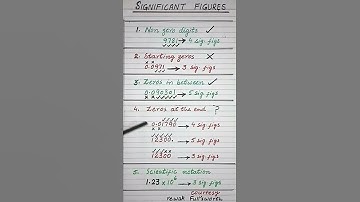 SIGNIFICANT FIGURES
1. Non zero digits ✓
9781 → 4 sig figs
2. Starting zeros ✗
0.0971 → 3 sig. figs
3. Zeros in between ✓
0.090301 → 5 sig figs
4. Zeros at the end ?
0.01790 → 4 sig figs
12300. → 5 sig figs
12300 → 3 sig figs
5. Scientific notation
1.23 × 10⁶ → 3 sig figs
courtesy